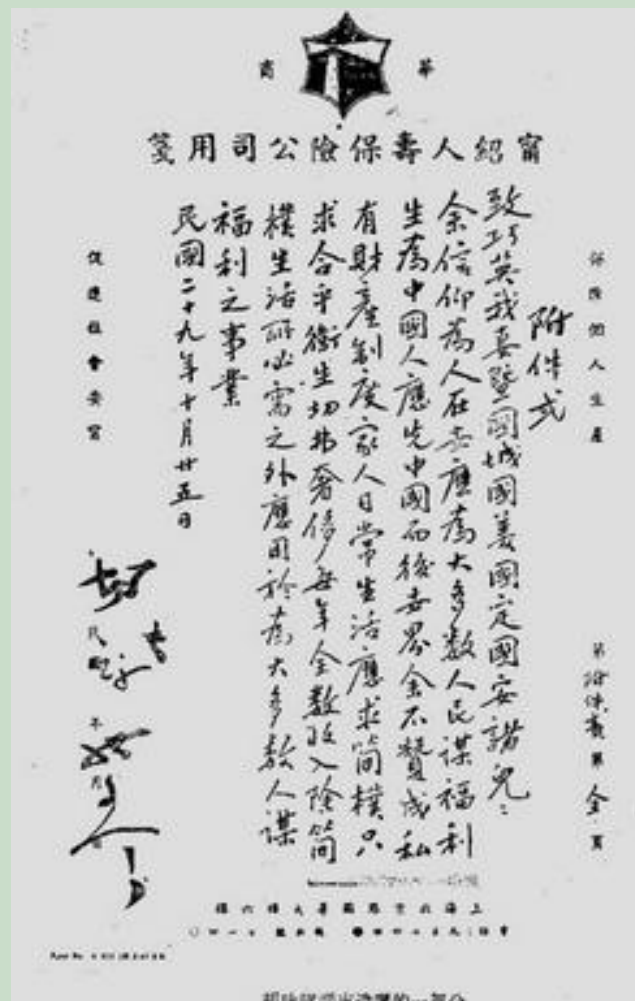 華商
甯紹人壽保險公司用箋
保障個人生產
附件弍
致巧英我妻暨國城國美國定國安諸兒：
余信仰為人在世應為大多數人民謀福利
生為中國人應先中國而後世界余不贊成私
有財產制度家人日常生活應求簡樸只
求合乎衛生切弗奢侈每年全數收入除簡
樸生活所必需之外應用於為大多數人謀
福利之事業
民國二十九年十月廿五日
促進社會安寧
上海北京路蘇華大樓六樓